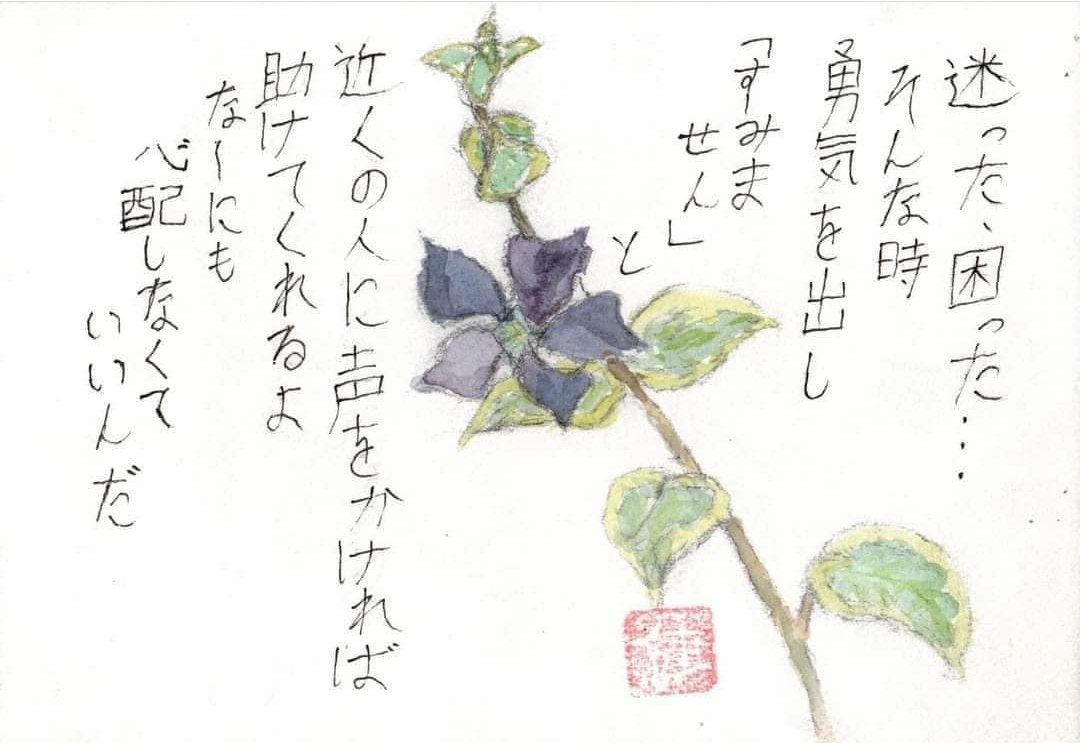 迷った、困った…
そんな時
勇気を出し
「すーみま
せん」
と
近くの人に声をかければ
助けてくれるよ
な〜にも
心配しなくて
いいんだ